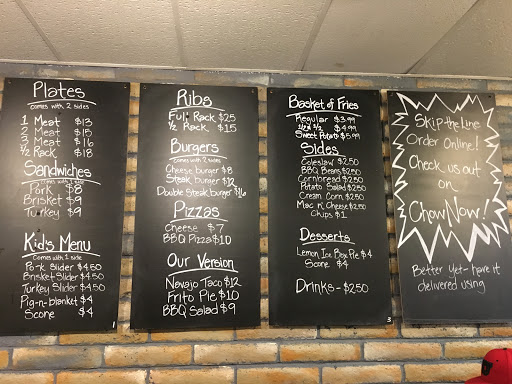 Plates
comes with 2 sides
1 Meat $13
2 Meat $15
3 Meat $16
1/2 Rack $18
Sandwiches
Pork $8
Brisket $9
Turkey $9
Kid's Menu
comes with 1 side
Pork Slider $4.50
Brisket Slider $4.50
Turkey Slider $4.50
Pig-n-blanket $4
Scone $4
1
Ribs
Full Rack $25
1/2 Rack $15
Burgers
comes with 2 sides
Cheese burger $8
Steak burger $12
Double Steak burger $16
Pizzas
Cheese $7
BBQ Pizza $10
Our Version
Navajo Taco $12
Frito Pie $10
BBQ Salad $9
Basket of Fries
Regular $3.99
$4.99
Sweet Potato $5.99
Sides
Coleslaw $2.50
BBQ Beans $2.50
Cornbread $2.50
Potato Salad $2.50
Cream Corn $2.50
Mac n Cheese $2.50
Chips $1
Desserts
Lemon Ice Box Pie $4
Scone $4
Drinks - $2.50
3
Skip the Line
Order Online!
Check us out
on
ChowNow!
Better Yet - have it
delivered using